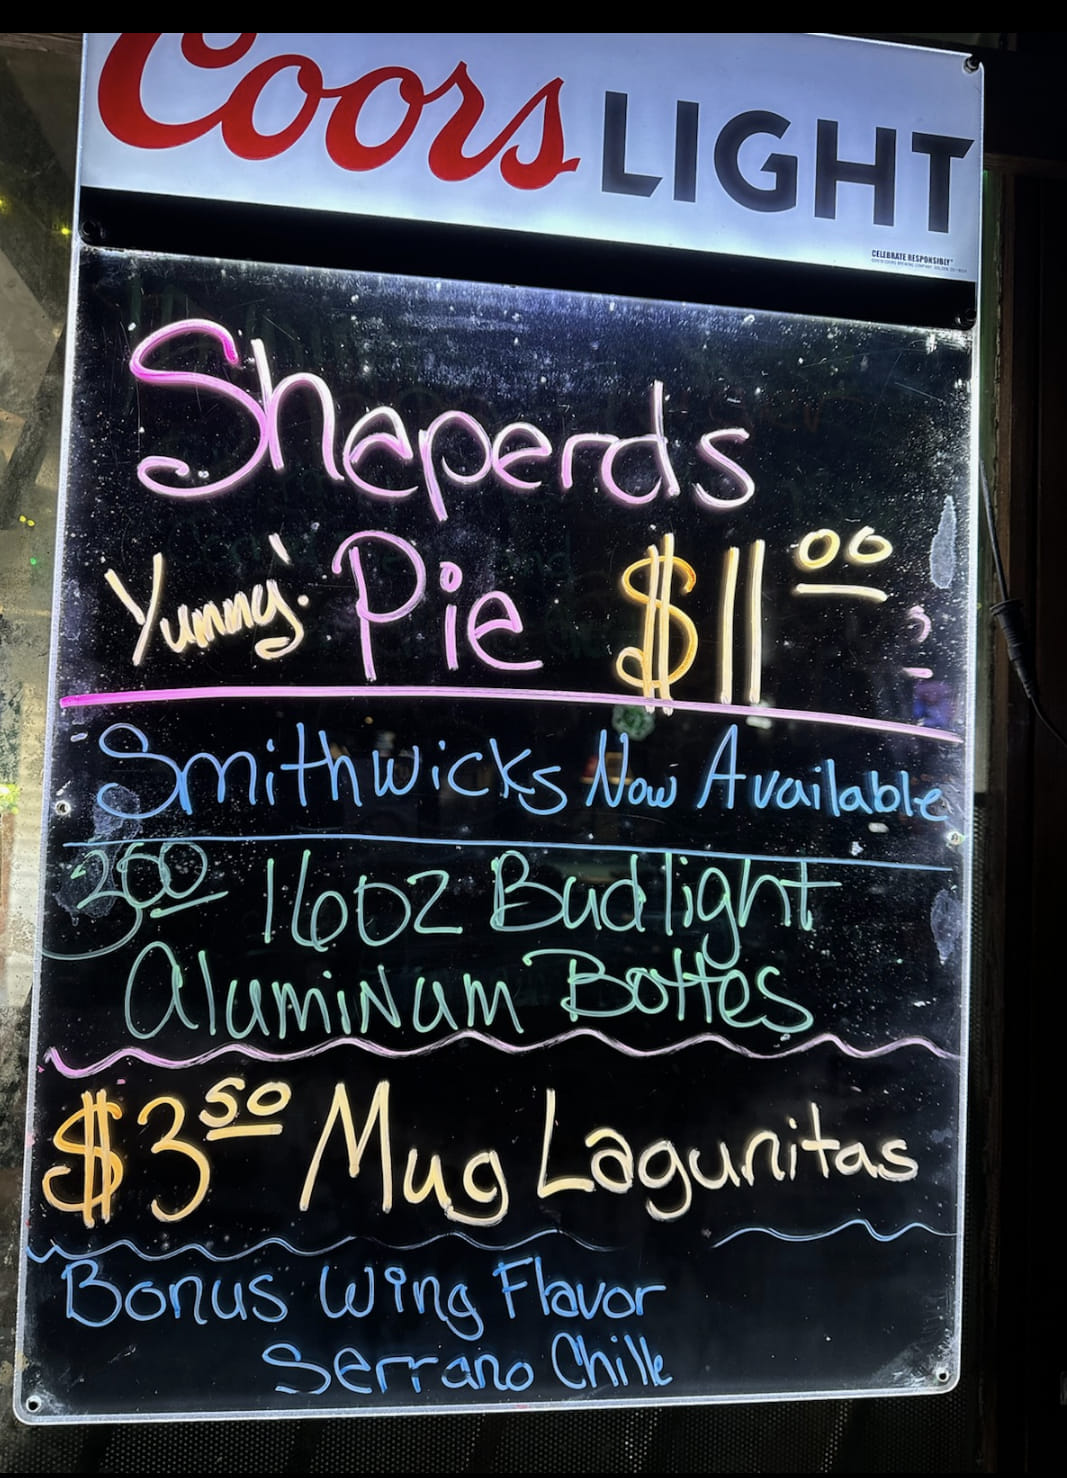 Coors LIGHT
CELEBRATE RESPONSIBLY®
Sheperds
Yummy! Pie $11 00
Smithwicks Now Available
16oz Budlight
Aluminum Bottes
$3 50 Mug Lagunitas
Bonus Wing Flavor
Serrano Chile